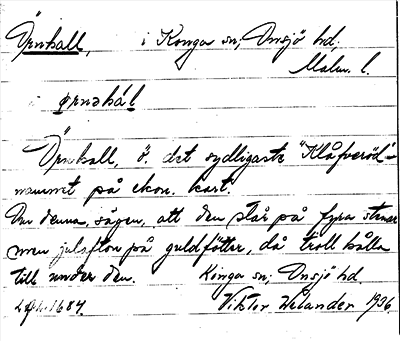 Örnhall, i Konga sn; Onsjö hd,
Malm. l.
ørnəhál
Örnhall, ö. det sydligaste "Klåfveröd"-
namnet på ekon. kart.
Om denna, sägen, att den står på fyra stenar
men julafton på guldfötter, då troll hålla
till under den. Konga sn; Onsjö hd.
1684. Viktor Welander 1936.